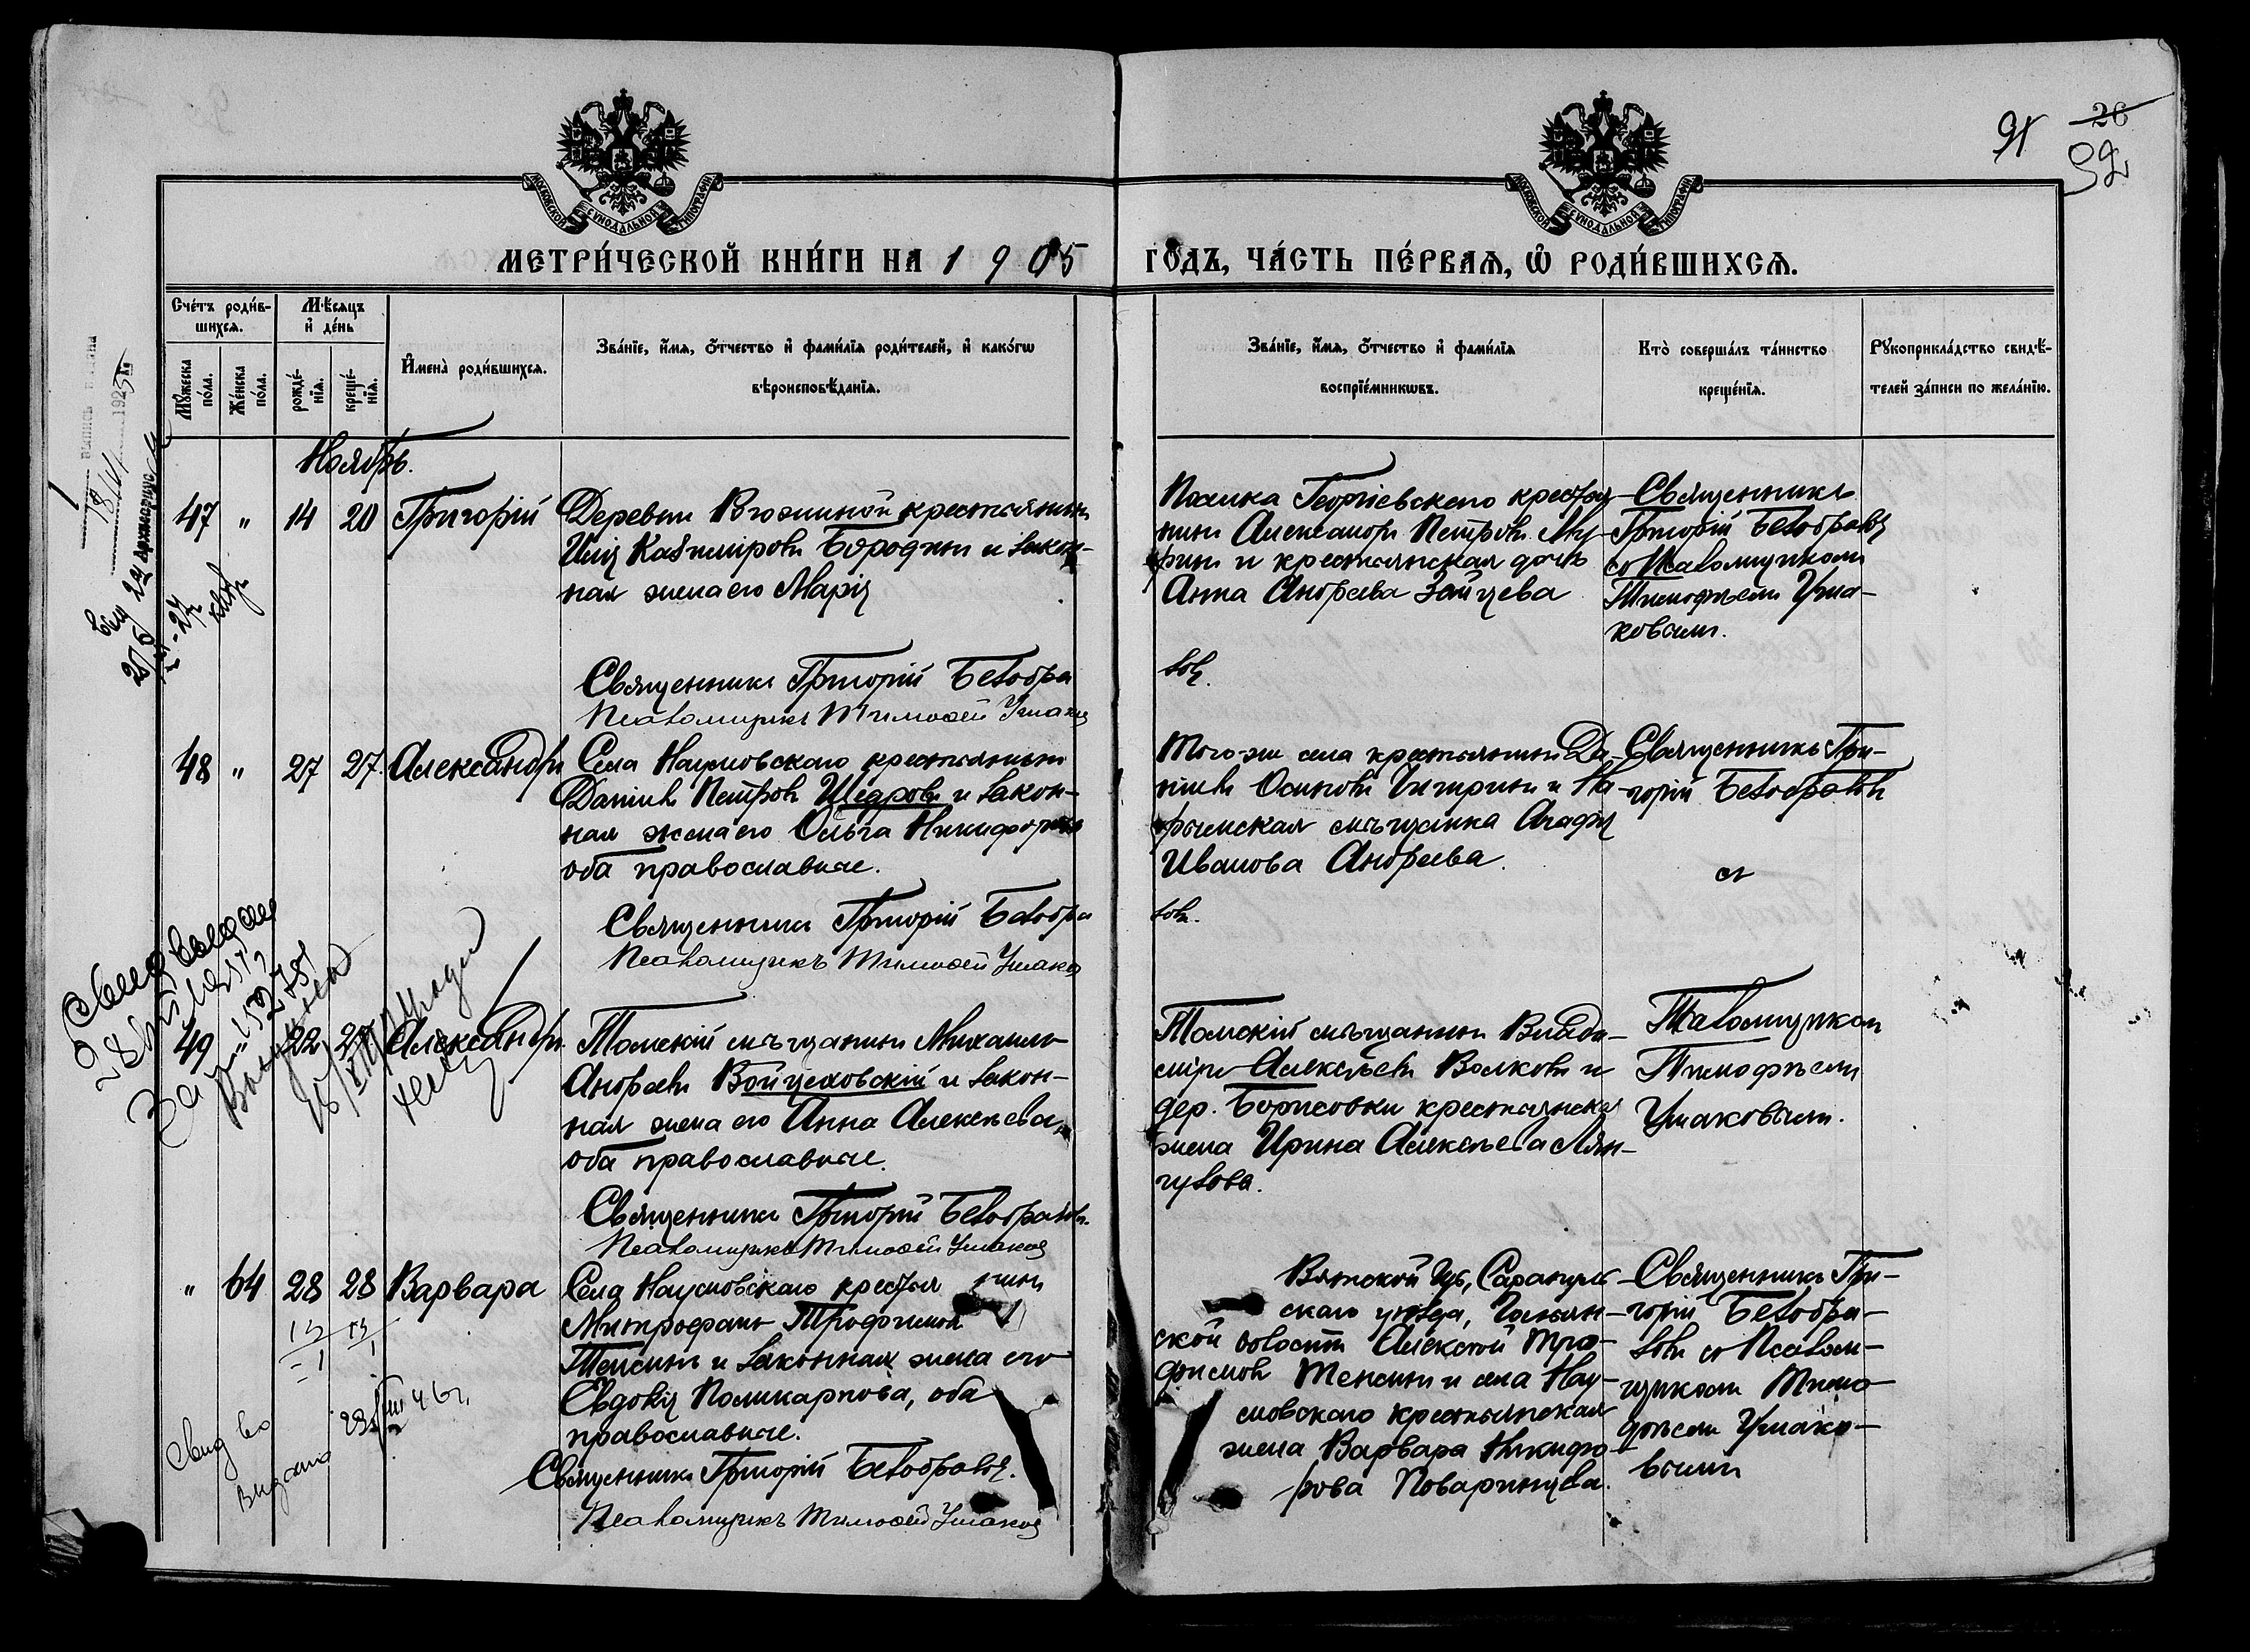 МОСКОВСКОЙ СѴНОДАЛЬНОЙ ТИПОГРАФІИ
МОСКОВСКОЙ СѴНОДАЛЬНОЙ ТИПОГРАФІИ
26
92
МЕТРИ́ЧЕСКОЙ КНИ́ГИ НА 1905
ГО́ДЪ, ЧА́СТЬ ПЕ́РВАѦ, Ѡ РОДИ́ВШИХСѦ.
Сче́тъ роди́в-
шихсѧ.
Мѣ́сѧцъ
и҆ де́нь
Му́жеска
по́ла.
Же́нска
по́ла.
рожде́-
нїѧ.
креще́-
нїѧ.
И҆мена̀ роди́вшихсѧ.
Зва́нїе, и҆́мѧ, ѻ҆́тчество и҆ фами́лїѧ роди́телей, и҆ како́гѡ
вѣроисповѣ́данїѧ.
Зва́нїе, и҆́мѧ, ѻ҆́тчество и҆ фами́лїѧ
воспрїе́мникѡвъ.
Кто̀ соверша́лъ та́инство
креще́нїѧ.
Рукоприкла́дство свидѣ́-
телей за́писи по жела́нїю.
Ноябрь.
47 " 14 20 Григорій
Деревни крестьянинъ
Казиміровъ Бородинъ и закон-
ная жена его Марія
Священникъ Григорій Безобра
Псаломщикъ Тимоѳей Ушаковъ
Поселка Георгіевскаго крестья-
нинъ Александръ Петровъ
и крестьянская дочь
Анна Андреева Зайцева
зовъ.
Священникъ
Григорій Безобразовъ
со Псаломщикомъ
Тимофѣемъ Уша-
ковымъ.
48 " 27 27. Александръ
Села Наумовскаго крестьянинъ
Даніилъ Петровъ Щедровъ и закон-
ная жена его Ольга Никифорова
оба православные.
Священникъ Григорій Безобра
Псаломщикъ Тимоѳей Ушаков
Того-же села крестьянинъ Да-
ніилъ Осиповъ Чигринъ и На-
рымская мѣщанка Агафія
Иванова Андреева.
зовъ.
Священникъ Гри-
горій Безобразовъ
съ
49 22 27 Александръ
Томскій мѣщанинъ Михаилъ
Андреевъ Войцеховскій и закон-
ная жена его Анна Алексѣева,
оба православные.
Священникъ Григорій Безобразовъ.
Псаломщикъ Тимоѳей Ушаковъ
Томскій мѣщанинъ Влади-
міръ Алексѣевъ Волковъ и
дер. Борисовки крестьянская
жена Ирина Алексѣева Лян-
гузова.
Псаломщикомъ
Тимофѣемъ
Ушаковымъ.
" 64 28 28 Варвара
Села Наумовскаго крестьянинъ
Митрофанъ Трофимовъ
Тенсинъ и законная жена его
Евдокія Поликарпова, оба
православные.
Священникъ Григорій Безобразовъ.
Псаломщикъ Тимоѳей Ушаковъ
Вятской губ., Сарапуль-
скаго уѣзда, Гольян-
ской волости Алексѣй Тро-
фимовъ Тенсинъ и села Нау-
мовскаго крестьянская
жена Варвара Никифо-
рова Поваринцева.
Священникъ Гри-
горій Безобра-
зовъ со Псалом-
щикомъ Тимо-
фѣемъ Ушако-
вымъ
Свид во
выдано
23/VIII 46 г.